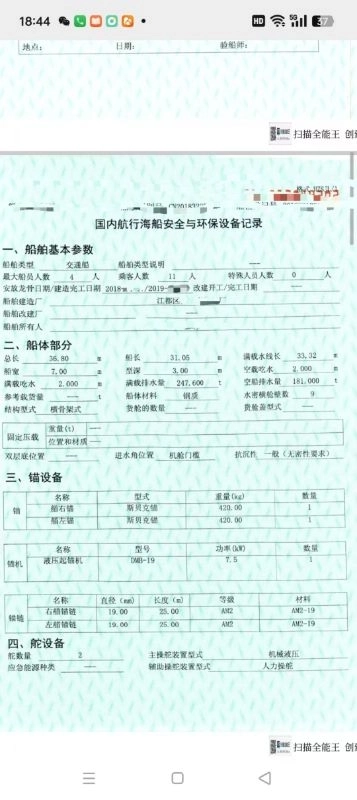 18:44
HD 5G 37
地点： 日期： 验船师：
扫描全能王 创
国内航行海船安全与环保设备记录
一、船舶基本参数
船舶类型 交通船 船舶类型说明 ——
最大船员人数 4 人 乘客人数 11 人 特殊人员人数 0 人
安放龙骨日期/建造完工日期 2018- /2019- 改建开工/完工日期 ——
船舶建造厂 江都区 厂
船舶改建厂 ——
船舶所有人
二、船体部分
总长 36.80 m 船长 31.05 m 满载水线长 33.32 m
船宽 7.00 m 型深 3.00 m 空载吃水 2.000 m
满载吃水 2.000 m 满载排水量 247.600 t 空船排水量 181.000 t
参考载货量 —— t 船体材料 钢质 水密横舱壁数 9
结构型式 横骨架式 货舱的数量 —— 货舱盖型式 ——
固定压载 重量(t) ——
位置和材质 ——
双层底位置 —— 进水角位置 机舱门槛 抗沉性 一般（无密性要求）
三、锚设备
名称 型式 重量(kg) 数量
锚 艏右锚 斯贝克锚 420.00 1
艏左锚 斯贝克锚 420.00 1
名称 型号 功率(kW) 数量
锚机 液压起锚机 DMB-19 7.5 1
名称 直径（mm） 长度（m） 等级 材料
锚链 右艏锚链 19.00 25.00 AM2 AM2-19
左艏锚链 19.00 25.00 AM2 AM2-19
四、舵设备
舵数量 2 主操舵装置型式 机械液压
应急能源种类 —— 辅助操舵装置型式 人力操舵
扫描全能王 创